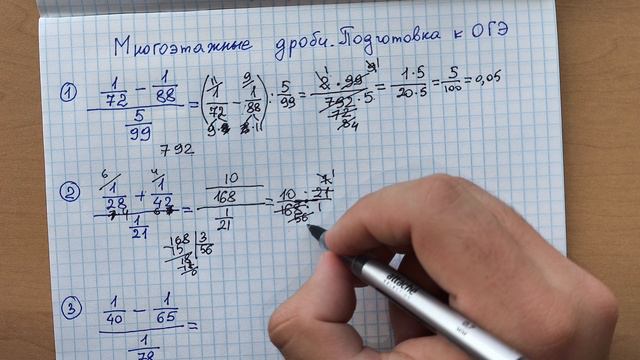 Многоэтажные дроби. Подготовка к ОГЭ
① (1/72 - 1/88) / (5/99) = (1/72 - 1/88) · 5/99 = 2 · 99 / 792 · 5 = 1·5 / 20·5 = 5/100 = 0,05
792
② (1/28 + 1/42) / (1/21) = (10/168) / (1/21) = 10 · 21 / 168
168 | 3
15 56
18
18
③ (1/40 - 1/65) / (1/78) =